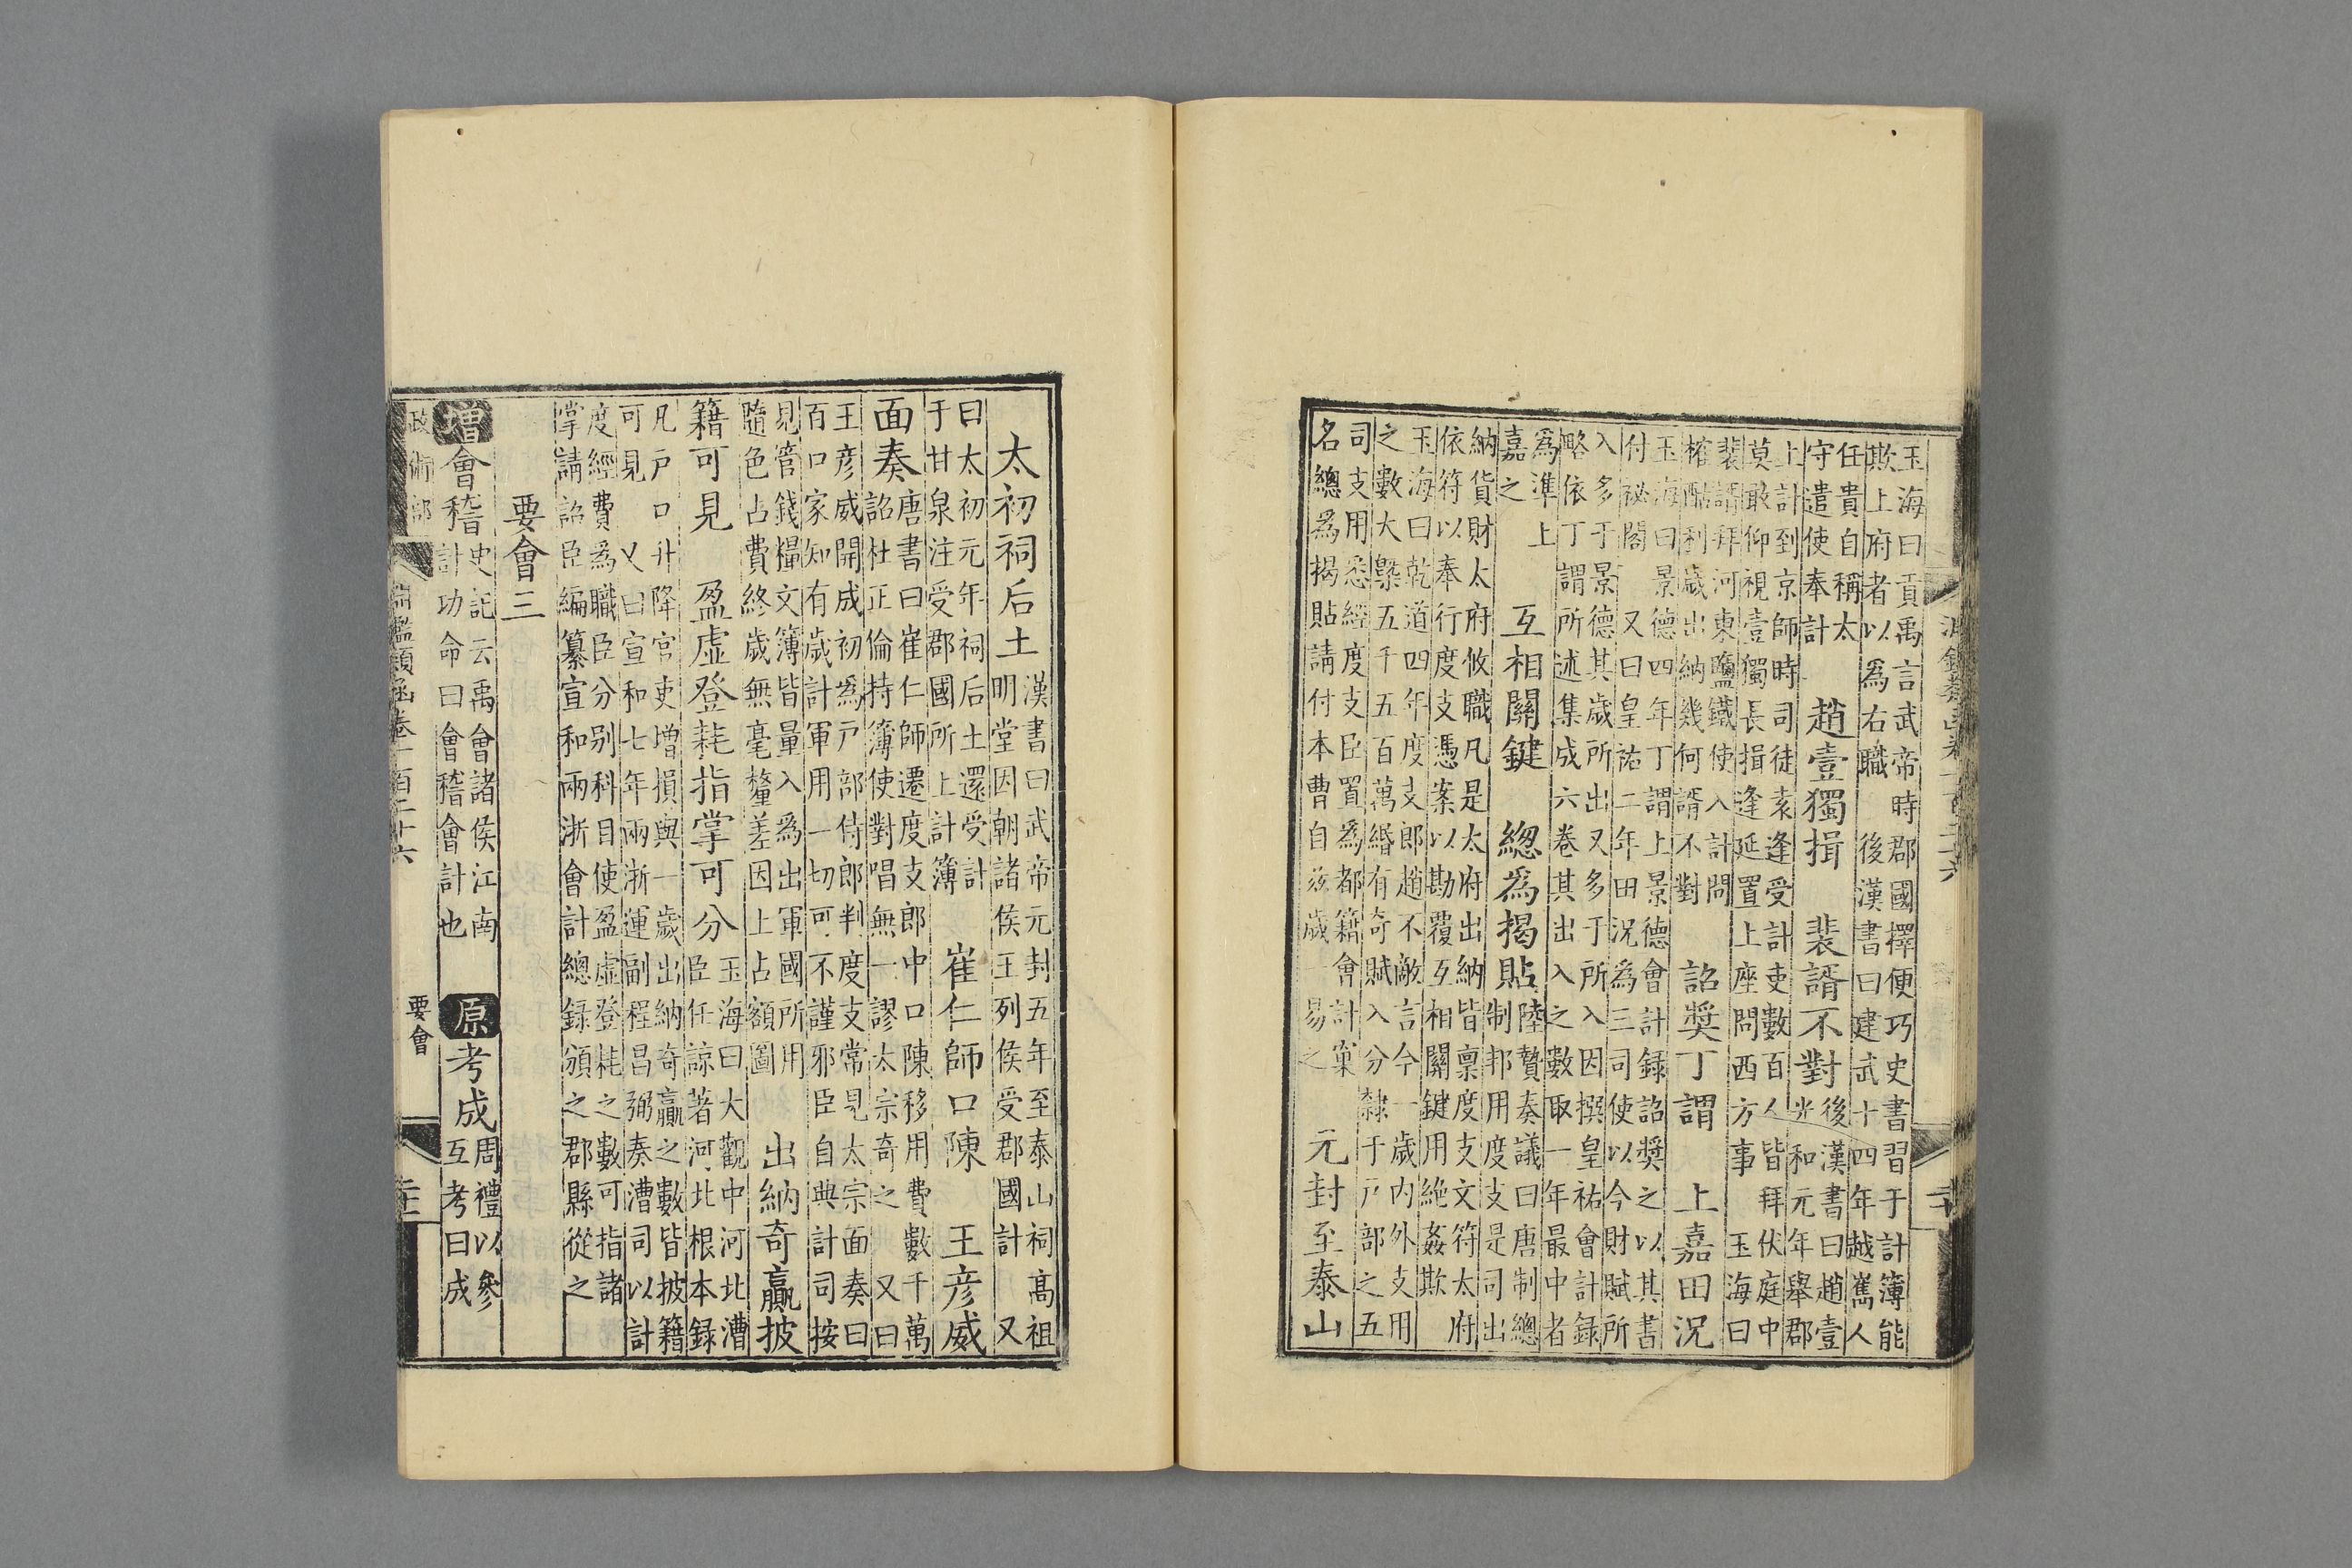 玉海曰貢禹言武帝時郡國擇便巧史書習于計簿能
欺上府者以爲右職 後漢書曰建武十四年越嶲人
任貴自稱太
守遣使奉計
趙壹獨揖 裴諝不對
後漢書曰趙壹
光和元年舉郡
上計到京師時司徒袁逢受計吏數百人皆拜伏庭中
莫敢仰視壹獨長揖逢延置上座問西方事 玉海曰
裴諝拜河東鹽鐵使入計問
榷酤利歲出納幾何諝不對
詔奬丁謂 上嘉田况
玉海曰景德四年丁謂上景德會計録詔奬之以其書
付祕閣 又曰皇祐二年田况爲三司使以今財賦所
入多于景德其歲所出又多于所入因撰皇祐會計録
略依丁謂所述集成六卷其出入之數取一年最中者
爲準上
嘉之
互相關鍵 總爲揭貼
陸贄奏議曰唐制總
制邦用度支是司出
納貨財太府攸職凡是太府出納皆禀度支文符太府
依符以奉行度支憑案以勘覆互相關鍵用絶姦欺
玉海曰乾道四年度支郎趙不敵言今一歲内外支用
之數大槩五千五百萬緡有奇賦入分隸于戸部之五
司支用悉經度支臣置爲都籍會計窠
名總爲揭貼請付本曹自玆歲一易之
元封至泰山
太初祠后土
漢書曰武帝元封五年至泰山祠高祖
明堂因朝諸侯王列侯受郡國計 又
曰太初元年祠后土還受計
于甘泉注受郡國所上計簿
崔仁師口陳 王彦威
面奏
唐書曰崔仁師遷度支郎中口陳移用費數千萬
詔杜正倫持簿使對唱無一謬太宗奇之 又曰
王彦威開成初爲戸部侍郎判度支常見太宗面奏曰
百口家知有歲計軍用一切可不謹邪臣自典計司按
見管錢糧文簿皆量入爲出軍國所用
隨色占費終歲無毫釐差因上占額圖
出納奇贏披
籍可見 盈虛登耗指掌可分
玉海曰大觀中河北漕
臣任諒著河北根本録
凡戸口升降官吏增損與一歲出納奇贏之數皆披籍
可見 又曰宣和七年兩浙運副程昌弼奏漕司以計
度經費爲職臣分别科目使盈虛登耗之數可指諸
掌請詔臣編纂宣和兩浙會計總録頒之郡縣從之
要會三
增會稽
史記云禹會諸侯江南
計功命曰會稽會計也
原考成
周禮以參
互考日成
政術部
淵鑑類函卷一百二十六
要會